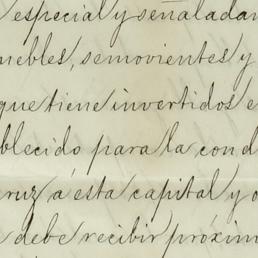 especial y señaladam
muebles, semovientes y
que tiene invertidos e
blecido para la cond
cruz á esta capital y o
debe recibir próxim